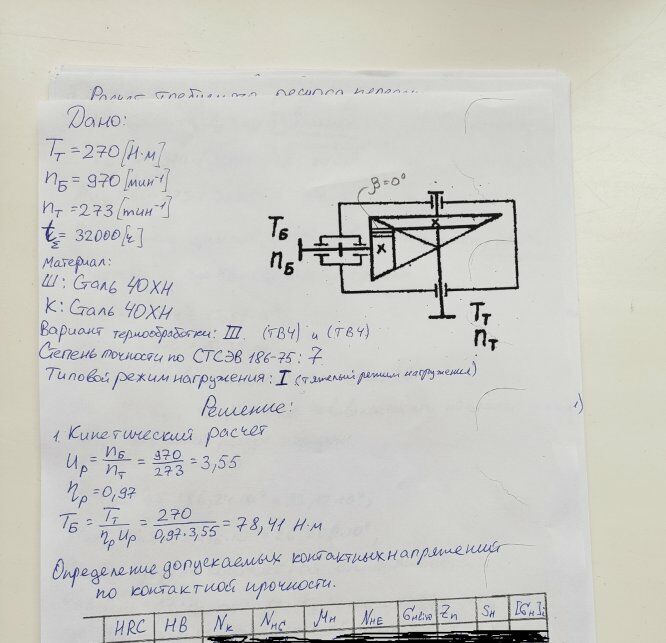 Расчет требуемого ресурса передачи
Дано:
Tт = 270 [Н·м]
nБ = 970 [мин⁻¹]
nт = 273 [мин⁻¹]
tΣ = 32000 [ч]
Материал:
Ш: Сталь 40ХН
К: Сталь 40ХН
Вариант термообработки: III. (ТВЧ) и (ТВЧ)
Степень точности по СТСЭВ 186-75: 7
Типовой режим нагружения: I (тяжелый режим нагружения)
β=0°
TБ
nБ
x
x
Tт
nт
Решение:
1)
1. Кинетический расчет
Uр = nБ/nт = 970/273 = 3,55
ηр = 0,97
TБ = Tт/ηр Uр = 270/0,97·3,55 = 78,41 Н·м
Определение допускаемых контактных напряжений
по контактной прочности.
HRC HB Nк NHG MH NHE σHlim Zn SH [σH]